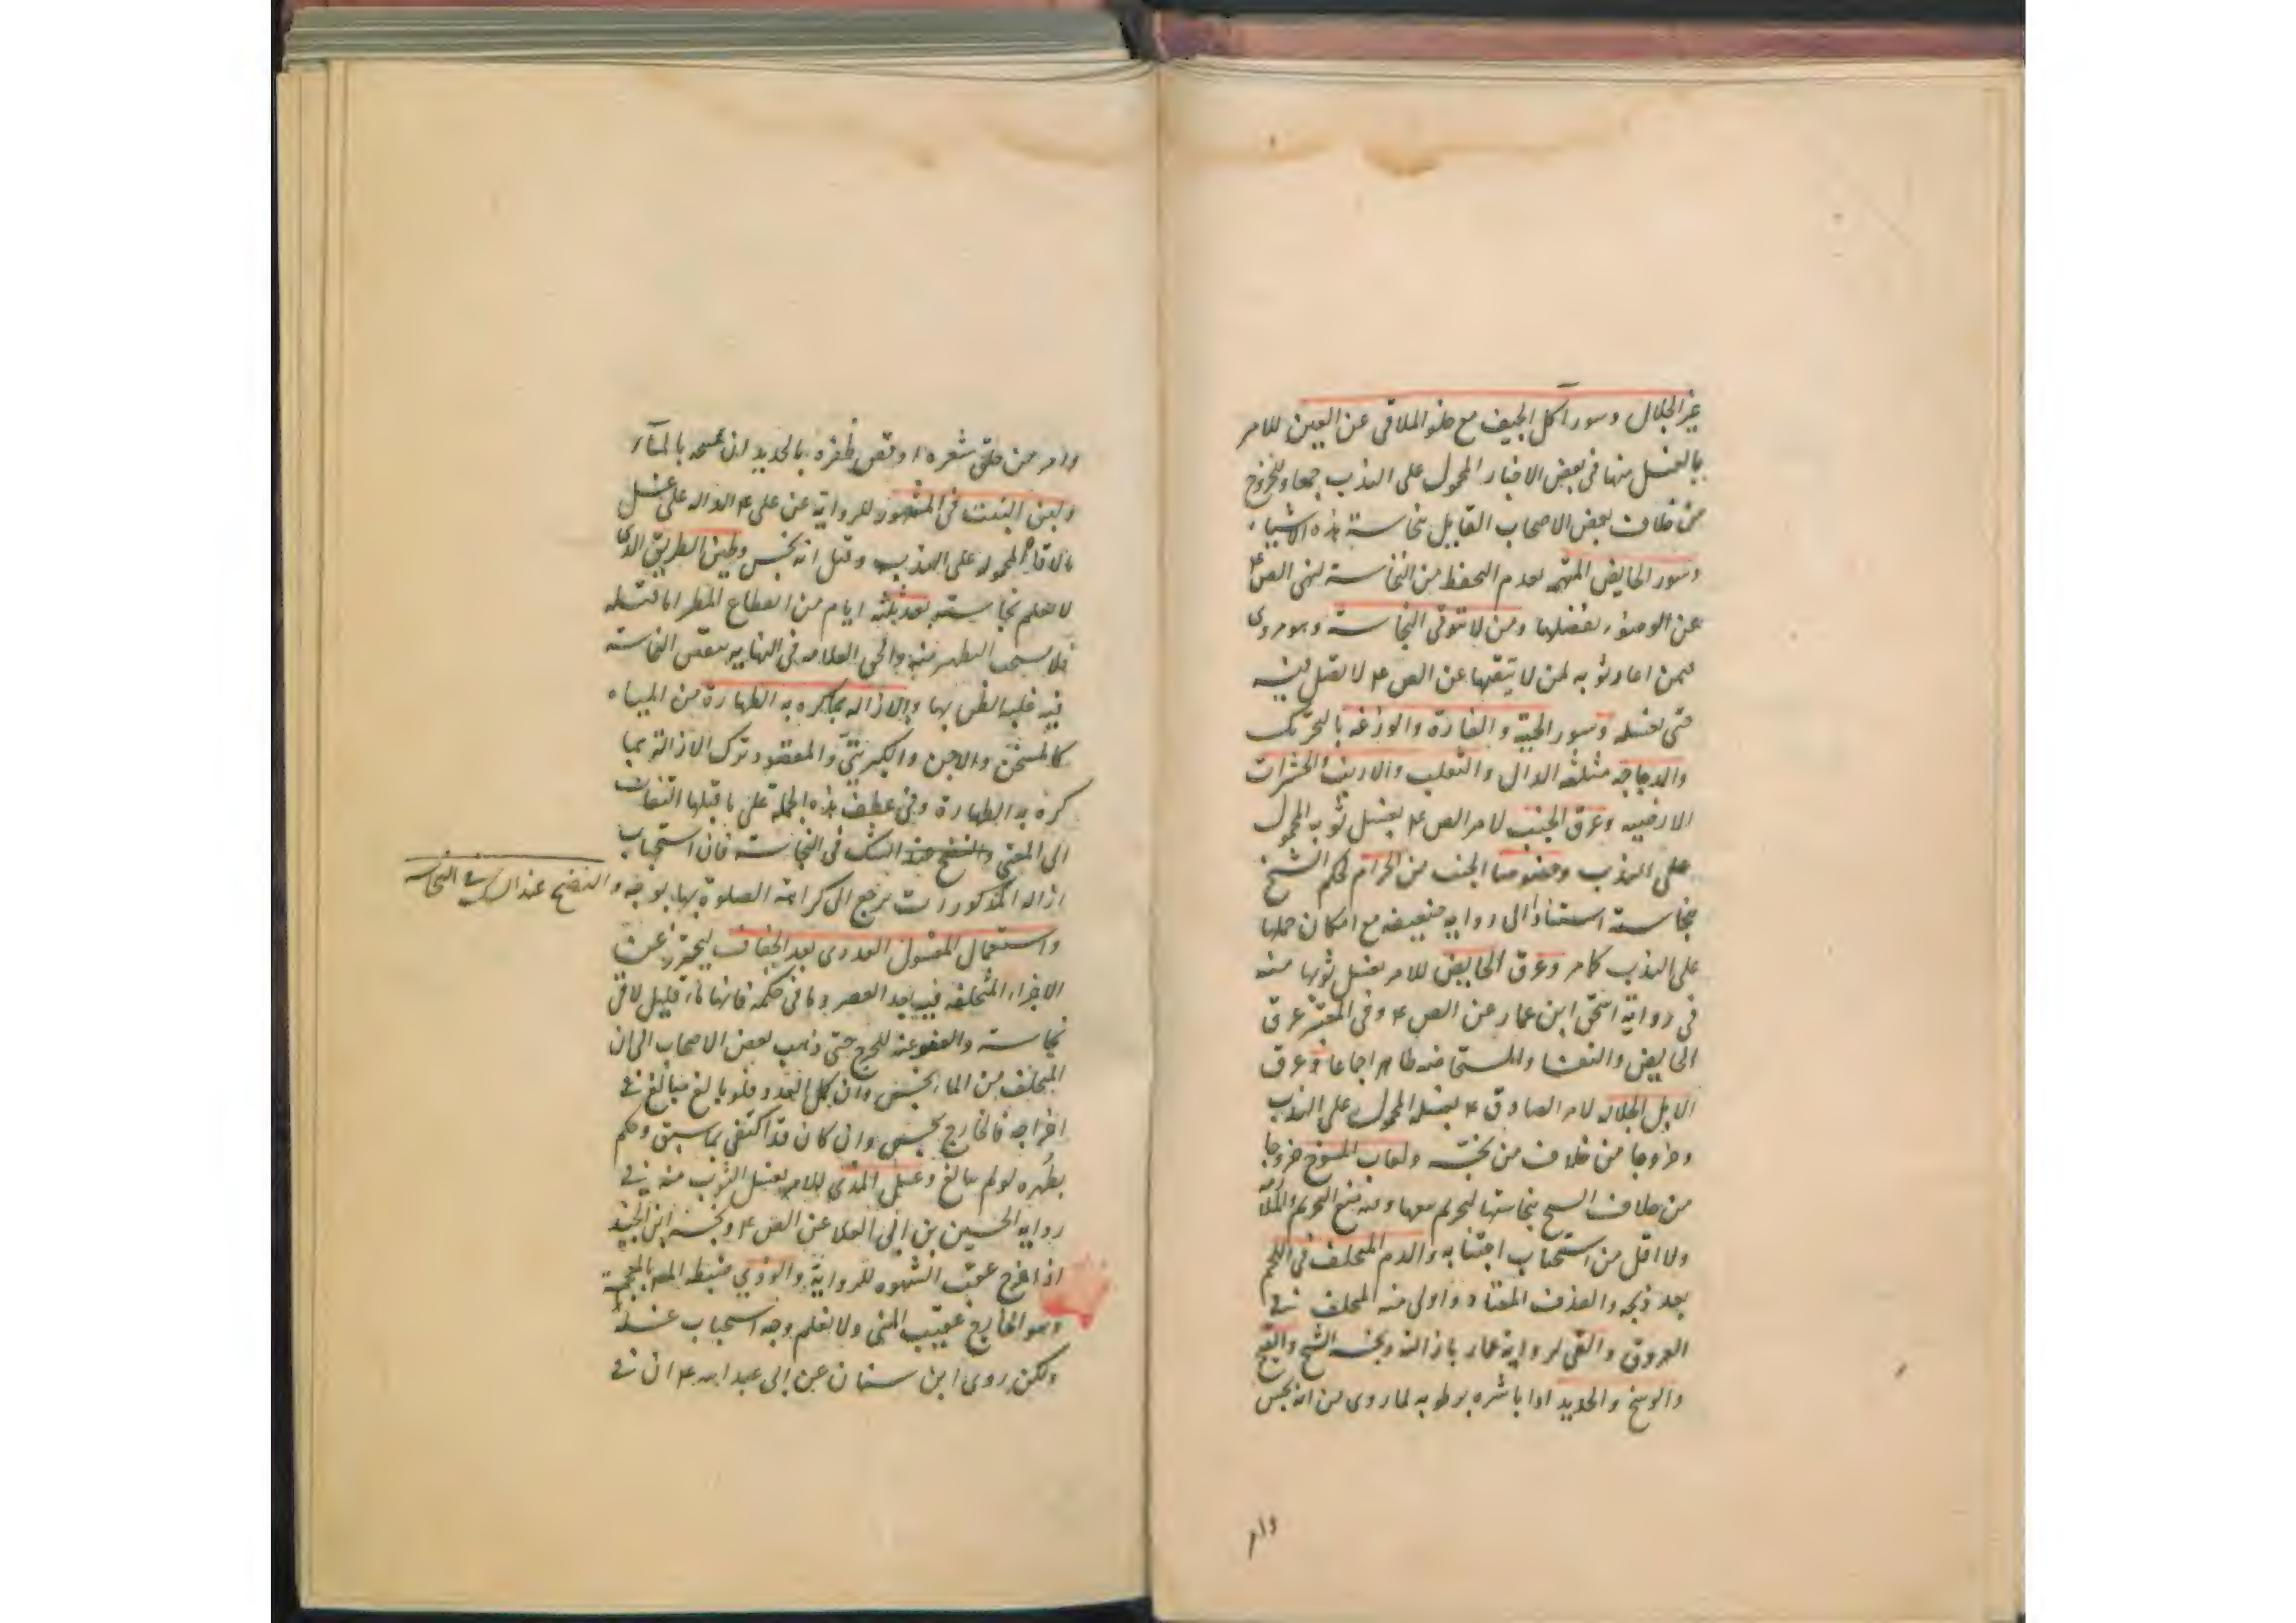 غير الجلال وسور آكل الجيف مع خلو الملاقى عن العين للامر
بالغسل منها فى بعض الاخبار المحمول على الندب جمعا وللخروج
من خلاف بعض الاصحاب القايل بنجاسة هذه الاشياء
وسور الحايض المتهمه بعدم التحفظ من النجاسة لنهى الص ع
عن الوضوء بفضلها ومن لا يتوقى النجاسة وهو مروى
فيمن اعار ثوبه لمن لا يتقيها عن الص ع لا تصل فيه
حتى تغسله وسور الحية و الفارة والوزغة بالتحريك
والدجاجه مثلثه الدال والثعلب والارنب والحشرات
الارضيه وعرق الجنب لامر الص ع بغسل ثوبه المحمول
على الندب وخصوصا الجنب من الحرام لحكم الشيخ
بنجاسته استنادا الى روايه ضعيفه مع امكان حملها
على الندب كامر وعرق الحايض للامر بغسل ثوبها منه
فى رواية اسحق ابن عمار عن الص ع وفى المعتبر عرق
الحايض والنفسا والمستحاضه طاهر اجماعا وعرق
الابل الجلاله لامر الصادق ع بغسله المحمول على الندب
وخروجا من خلاف من نجسه ولعاب المسوخ خروجا
من خلاف الشيخ بنجاستها لتحريم بيعها وفيه منع التحريم والملازمه
ولا اقل من استحباب اجتنابه والدم المتخلف فى اللحم
بعد ذبحه والقذف المعتاد واولى منه المتخلف فى
العروق والقى لرواية عمار بازالته ونجسه الشيخ والقيح
والوسخ والحديد اذا باشره برطوبه لما روى من انه نجس
وامر
وامر من حلق شعره او قص ظفره بالحديد ان يمسحه بالماء
ولبن البنت فى المشهور للرواية عن على ع الداله على غسل
مالاقاه المحموله على الندب وقيل انه نجس وطين الطريق الذى
لا تعلم نجاسته بعد ثلثه ايام من انقطاع المطر اما قبله
فلا يستحب التطهير منه والحق العلامه فى النهايه ببعض النجاسة
فيه غلبه الظن بها والازاله بما يكره به الطهارة من المياه
كالمسخن والاجن والكبريتى والمقصود ترك الازالة بما
كره به الطهارة وفى عطف هذه الجملة على ما قبلها التفات
الى المعنى والنضح عند الشك فى النجاسة فان استحباب
ازاله المذكورات يرجع الى كراهة الصلوة بها بوجه
والنضح عند الشك فى النجاسه
واستعمال المغسول العددى بعد الجفاف ليتحرز عن
الاجزاء المتخلفه فيه بعد العصر وما فى حكمه فانها ماء قليل لاقى
نجاسة والعفو عنه للحرج حتى ذهب بعض الاصحاب الى ان
المتخلف من الماء نجس وان كمل العدد فلو بالغ مبالغ فى
اخراجه فالخارج نجس وان كان قد اكتفى بما سبق وحكم
بطهره لو لم يبالغ وغسل المذى للامر بغسل الثوب منه فى
روايه الحسين بن ابى العلا عن الص ع ونجسه ابن الجنيد
اذا خرج عقيب الشهوه للرواية والوذى ضبطه المص بالمعجمة
وهو الخارج عقيب المنى ولا نعلم وجه استحباب غسله
ولكن روى ابن سنان عن ابى عبد الله ع ان فى